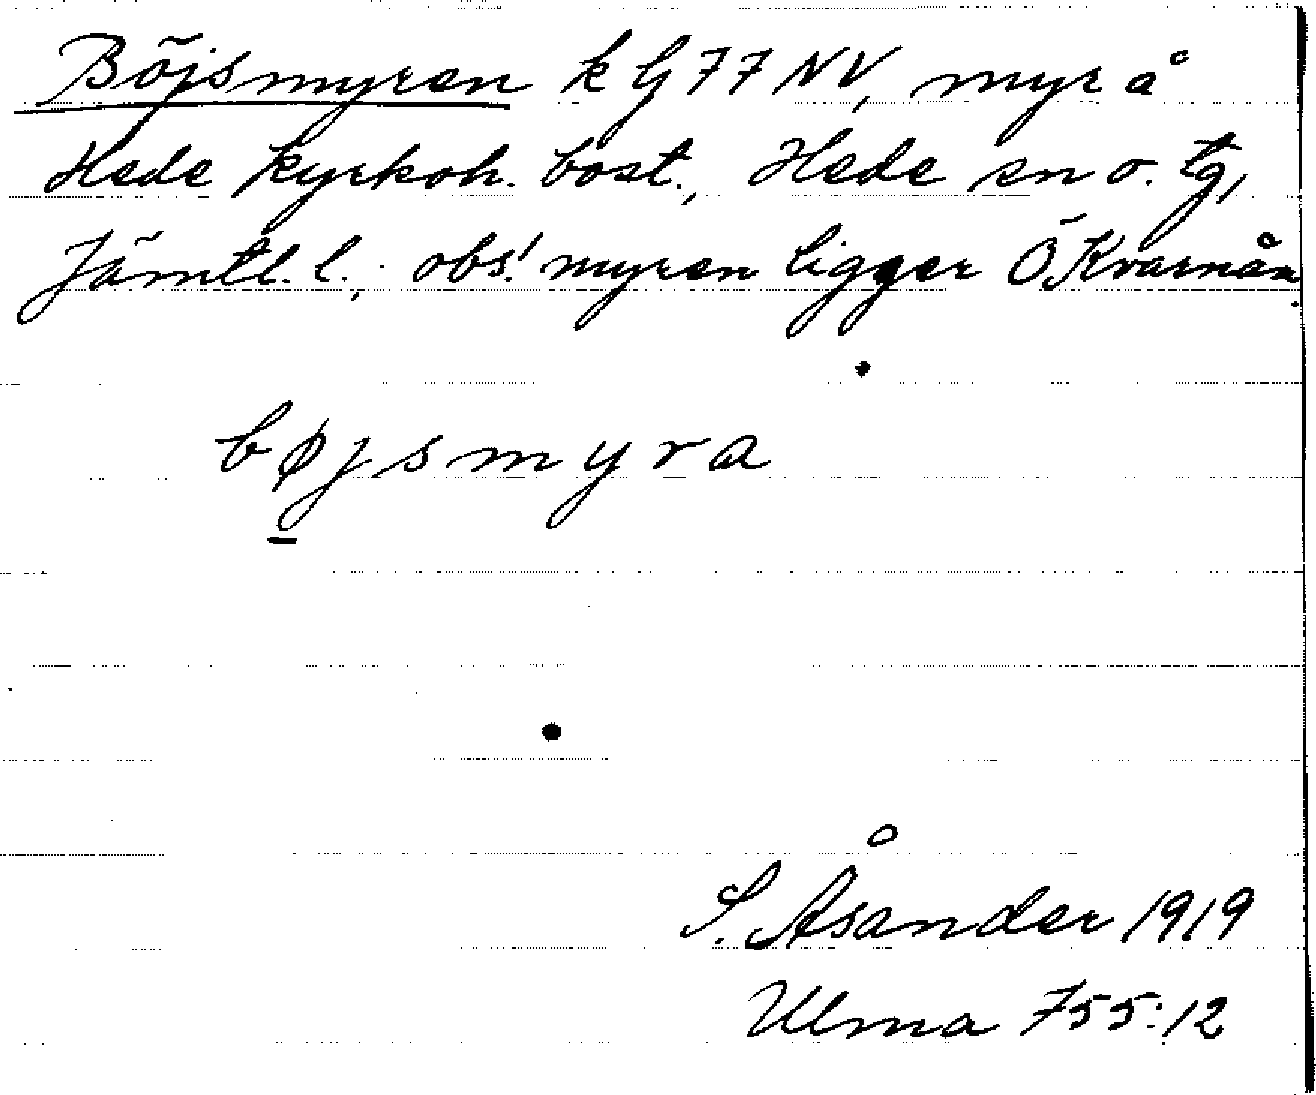 Böjsmyren k G 77 NV, myr å
Hede kyrkoh. bost., Hede sn o. tg,
Jämtl. l., obs! myren ligger Ö. Kvarnån.
bøjsmyra
S. Åsander 1919
Ulma 755:12